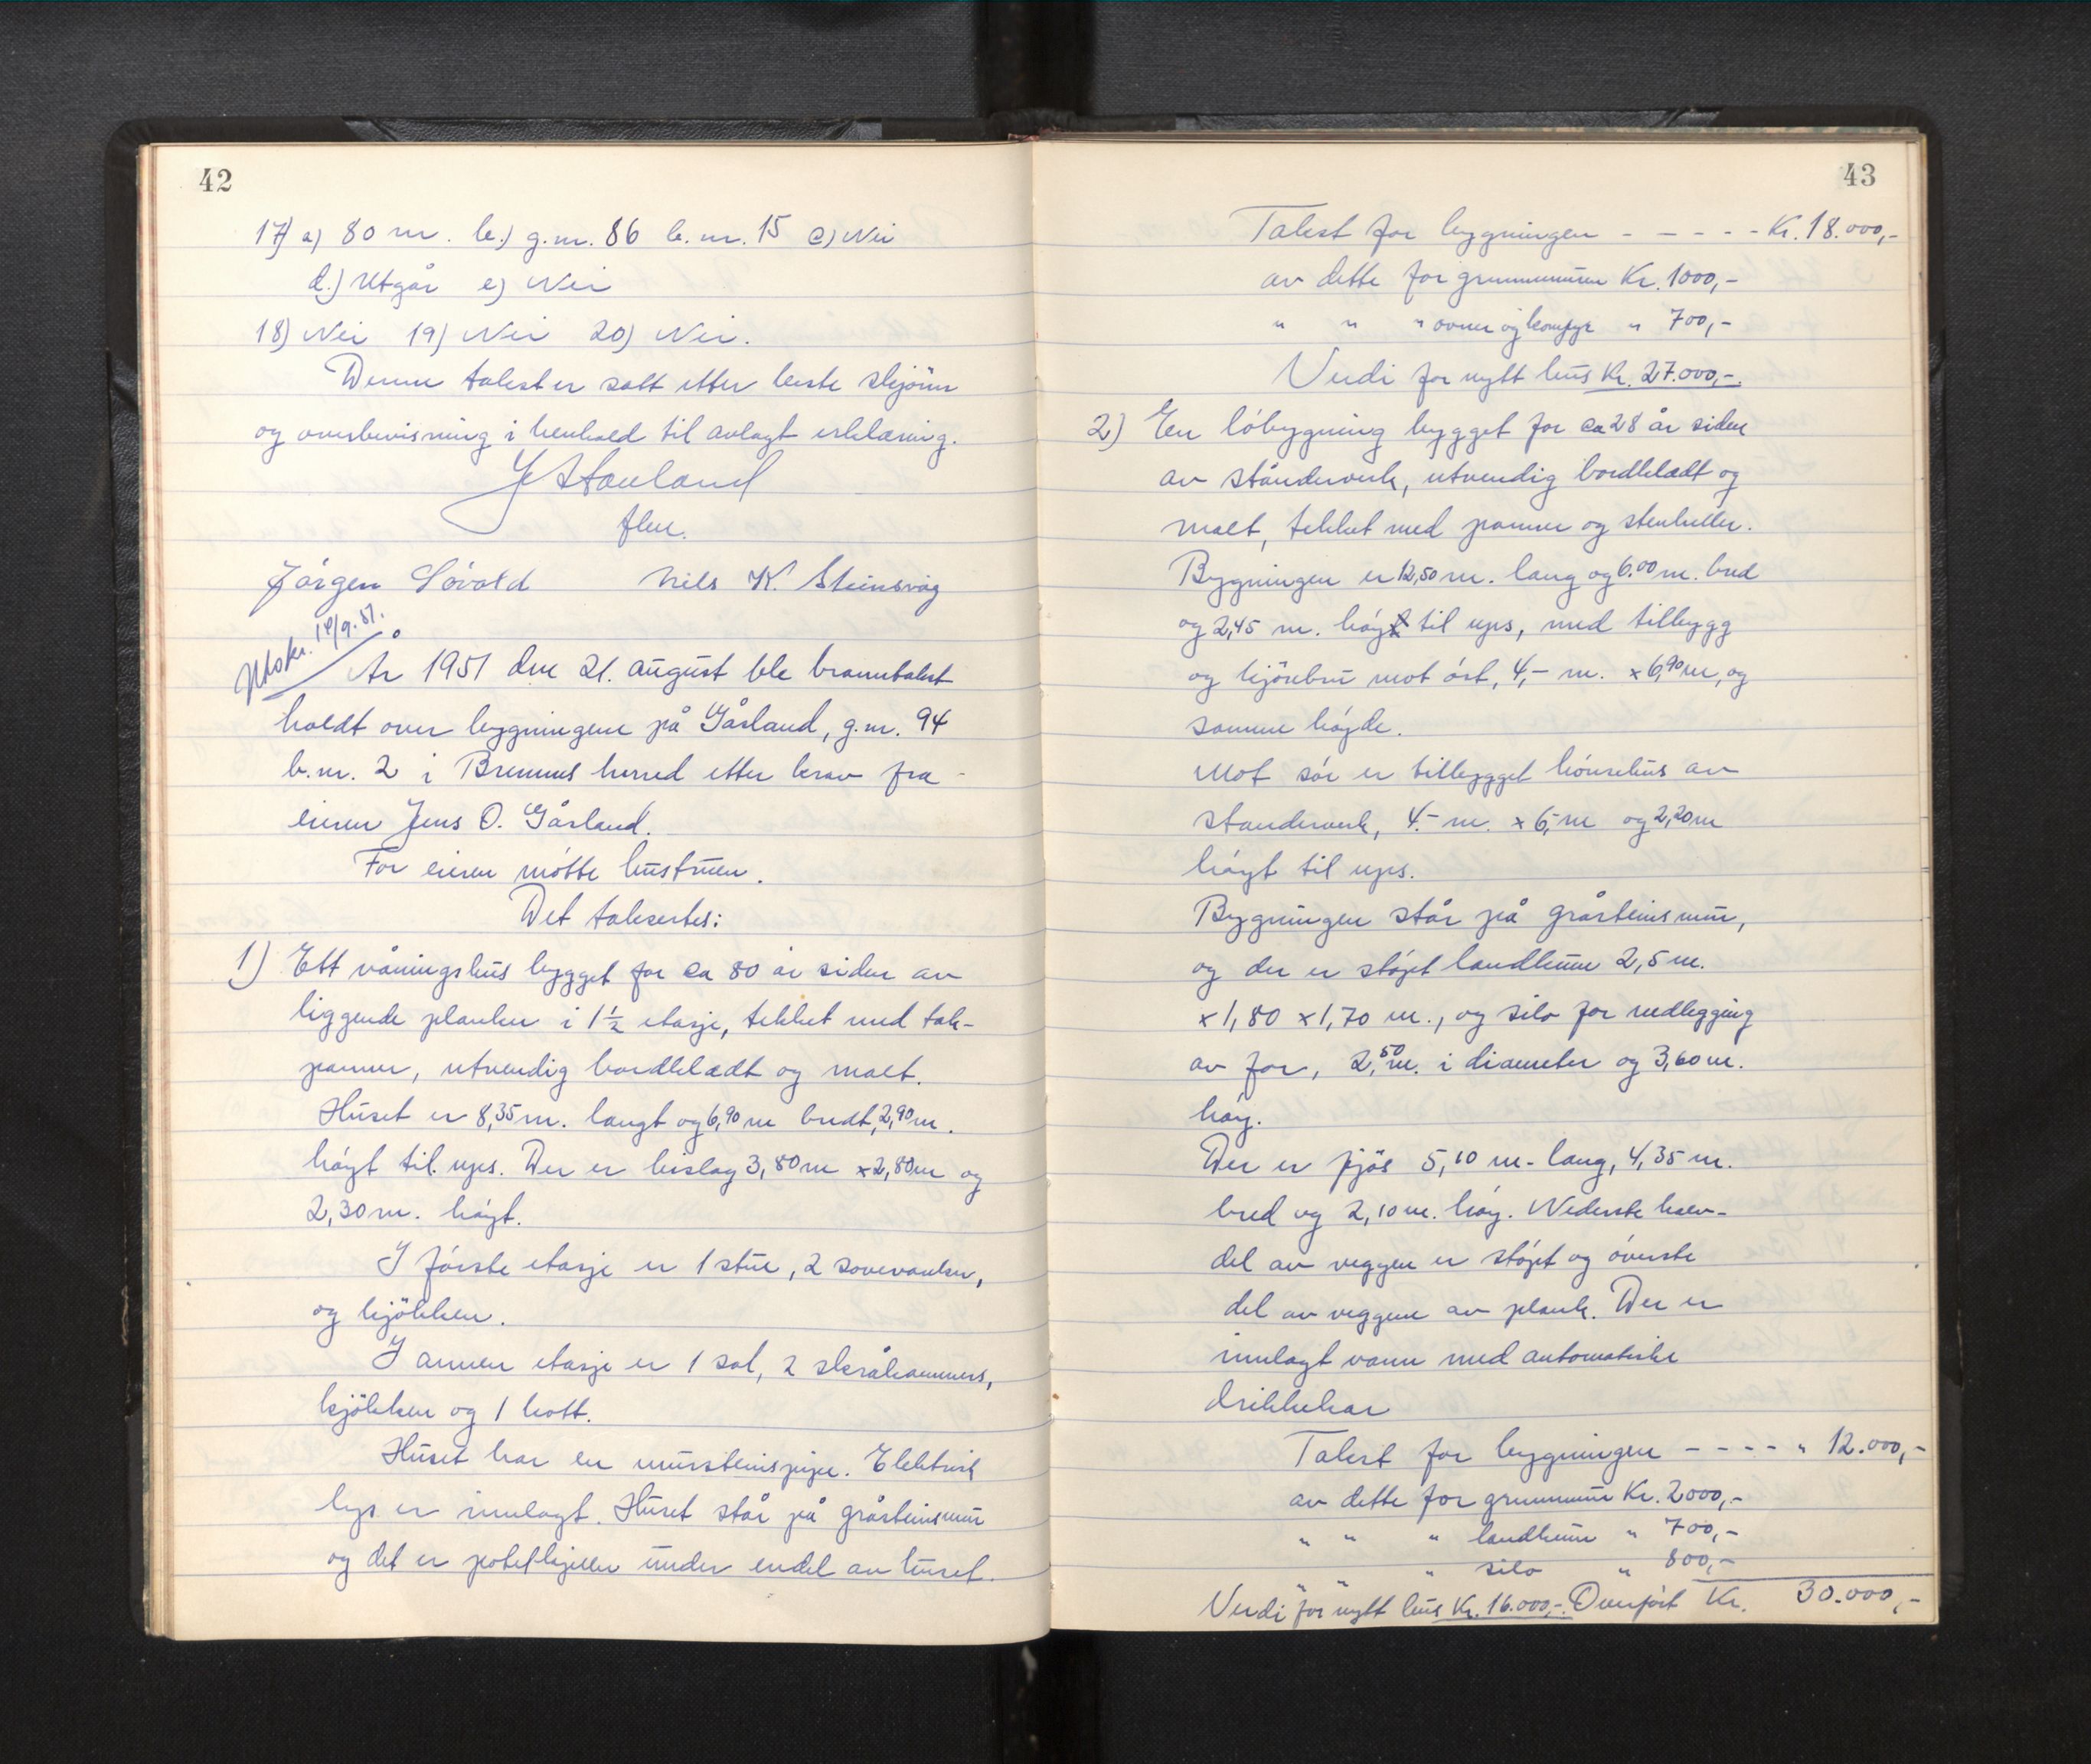 42
17) a) 80 m. b.) g.nr. 86 b.nr. 15 c) Nei
d.) Utgår e) Nei
18) Nei 19) Nei 20) Nei.
Denne takst er satt etter beste skjønn
og overbevisning i henhold til avlagt erklæring.
J Stauland
flm.
Jørgen Løvold Nils K. Steinsvåg
Utskr. 18/9.51.
År 1951 den 21. august ble branntakst
holdt over bygningene på Gåsland, g.nr. 94
b.nr. 2 i Bremnes herred etter krav fra
eieren Jens O. Gåsland.
For eieren møtte hustruen.
Det takseres:
1) Ett våningshus bygget for ca 80 år siden av
liggende planker i 1½ etasje, tekket med tak-
panner, utvendig bordklædt og malt.
Huset er 8,35 m. langt og 6,90 m bredt, 2,90 m.
høgt til ups. Der er bislag 3,80 m x 2,80 m og
2,30 m. høgt.
I første etasje er 1 stue, 2 soveværelser,
og kjøkken.
I annen etasje er 1 sal, 2 skråkammers,
kjøkken og 1 kott.
Huset har en mursteinspipe. Elektrisk
lys er innlagt. Huset står på gråsteinsmur
og det er potetkjeller under endel av huset.
43
Takst for bygningen - - - - - Kr. 18.000,-
av dette for grunnmuren Kr. 1000,-
" " " ovner og komfyr " 700,-
Verdi for nytt hus Kr. 27.000,-.
2) En løbygning bygget for ca 28 år siden
av stånderverk, utvendig bordklædt og
malt, tekket med panner og stenheller.
Bygningen er 12,50 m. lang og 6.00 m. bred
og 2,45 m. høg til ups, med tilbygg
og kjørebru mot øst, 4,- m. x 6,90 m, og
samme høgde.
Mot sør er tilbygget hønsehus av
standerverk, 4.- m. x 6,- m og 2,20 m
høgt til ups.
Bygningen står på gråsteinsmur,
og der er støpt landkum 2,5 m.
x 1,80 x 1,70 m., og silo for nedlegging
av for, 2,50 m. i diameter og 3,60 m.
høg.
Der er fjøs 5,10 m. lang, 4,35 m.
bred og 2,10 m. høg. Nederste halv-
del av veggen er støpt og øverste
del av veggene av plank. Der er
innlagt vann med automatiske
drikkekar
Takst for bygningen - - - - " 12.000,-
av dette for grunnmur Kr. 2000,-
" " " landkum " 700,-
" " " silo " 800,-
Verdi for nytt hus Kr. 16.000,-. Overført Kr. 30.000,-